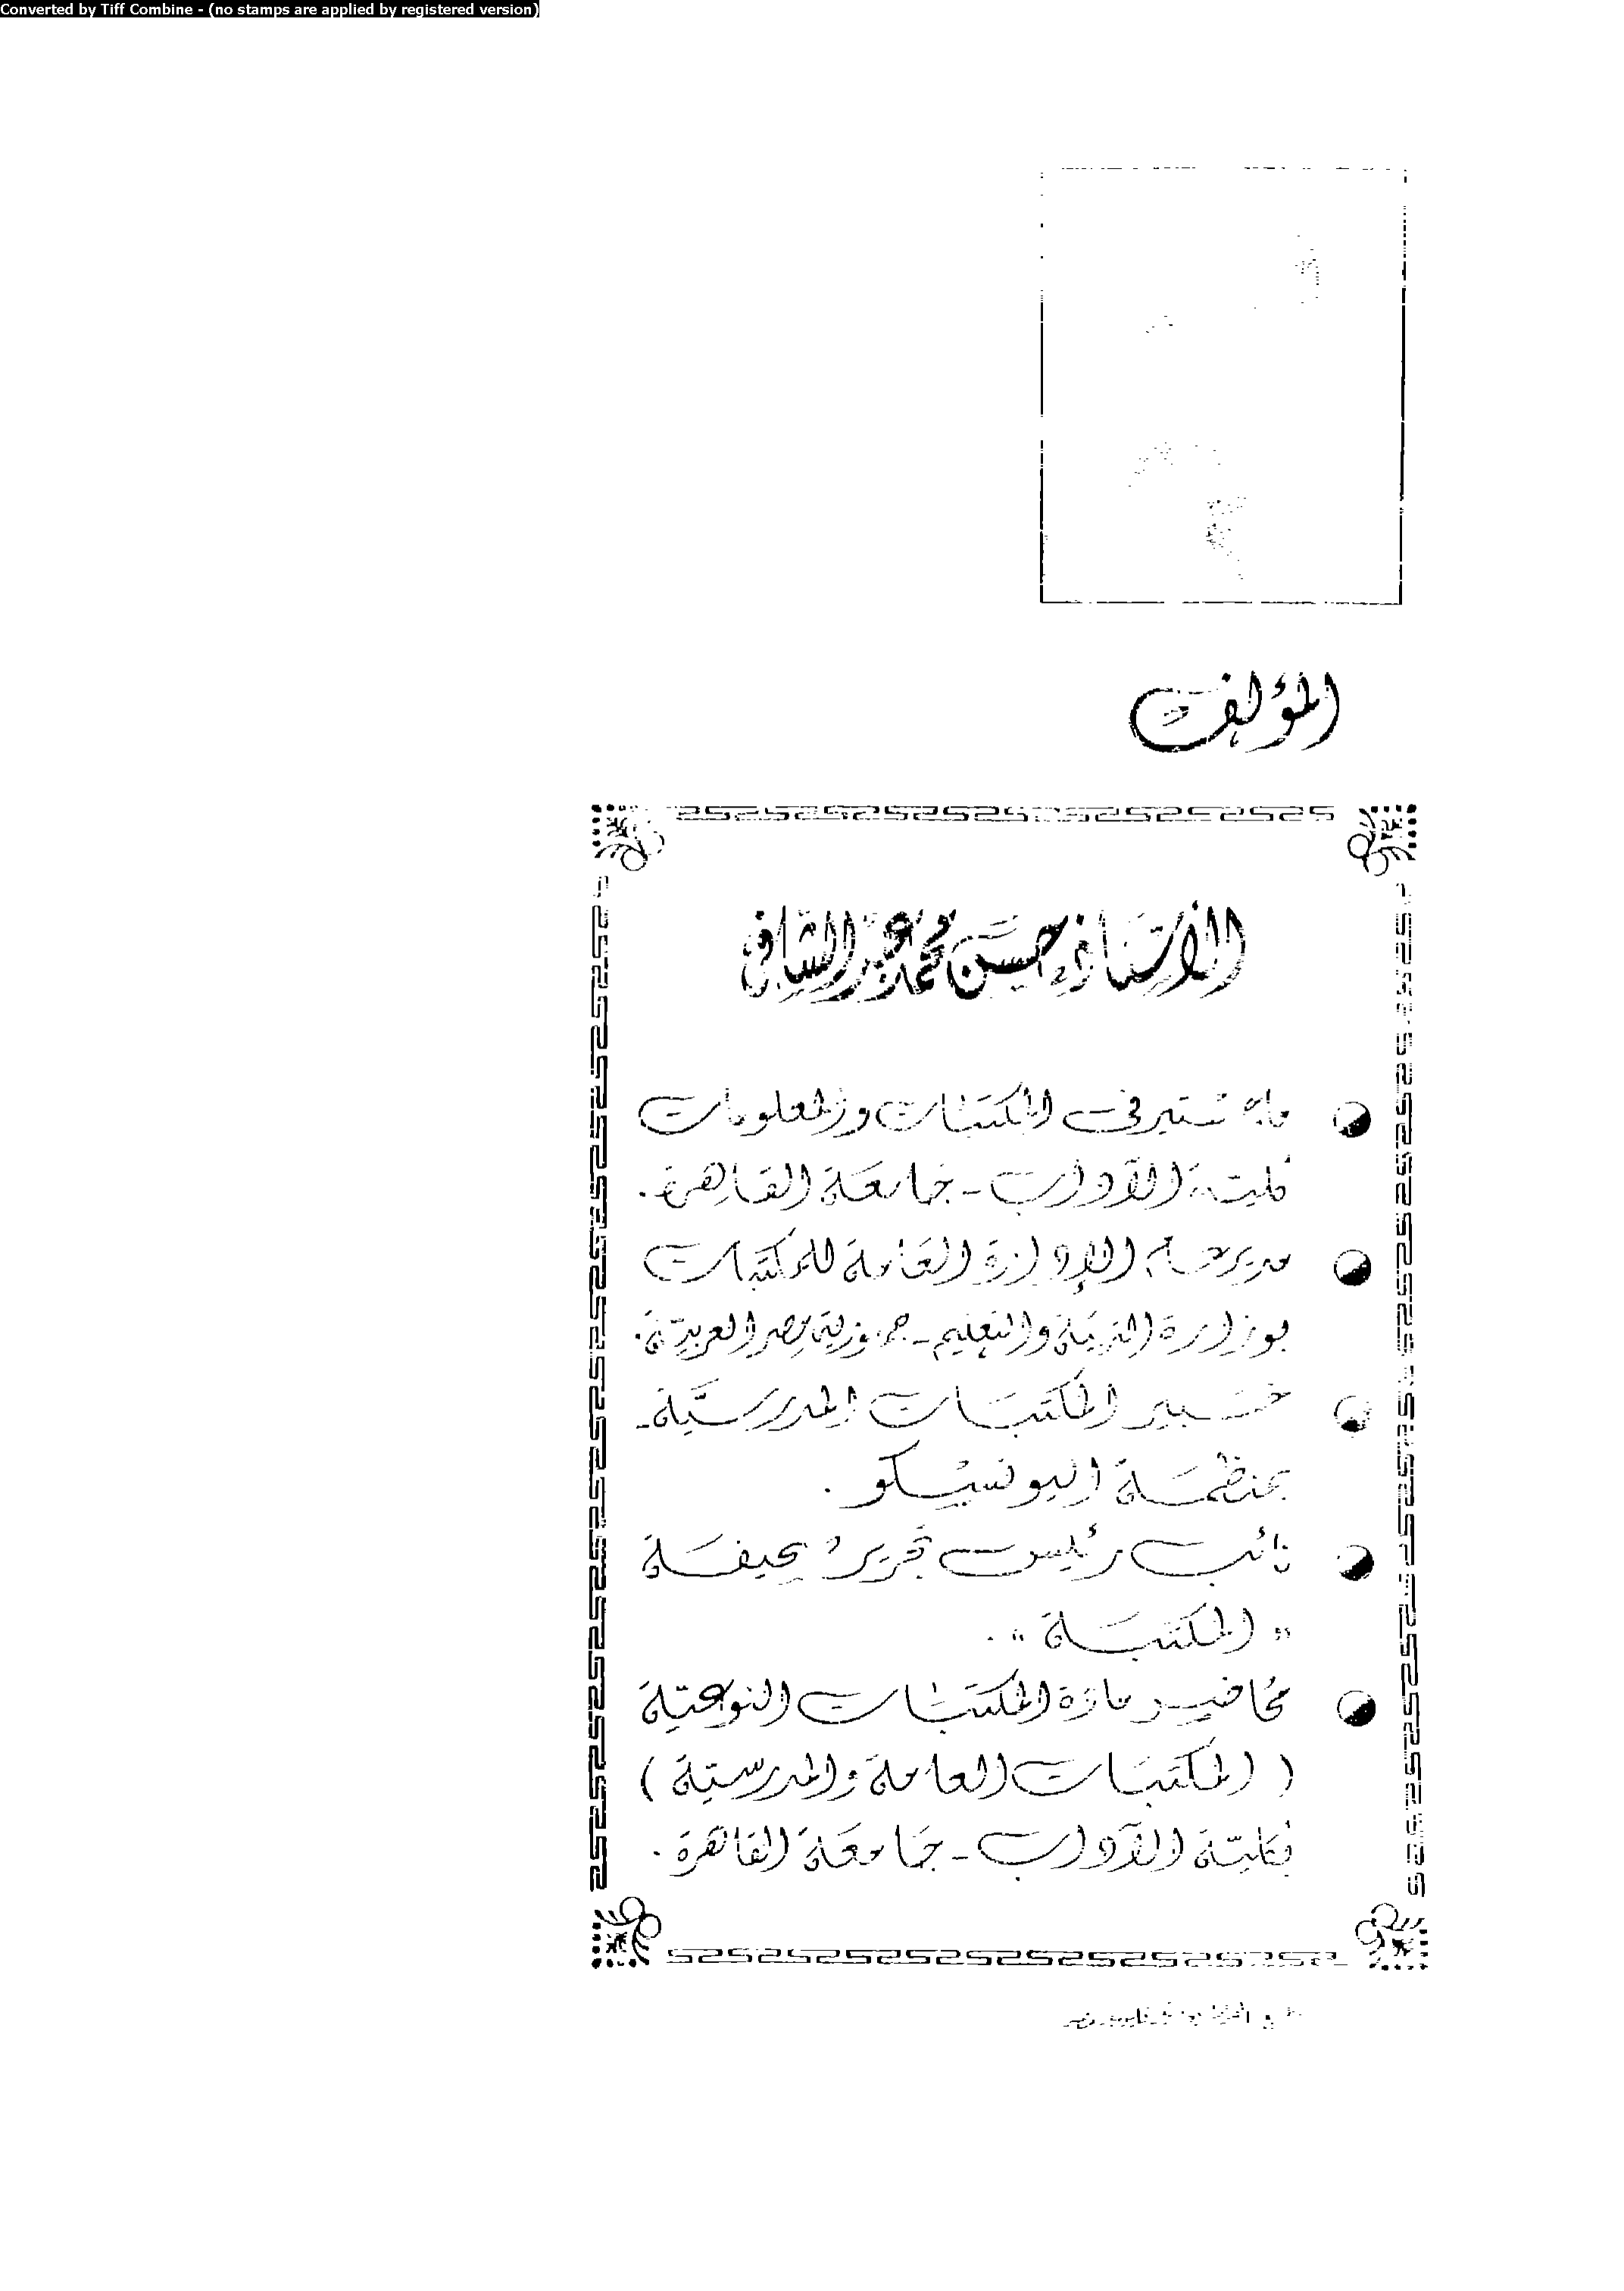 Converted by Tiff Combine - (no stamps are applied by registered version)
المؤلف
الأستاذ حسن محمد عبد الشافى
ماجستير فى المكتبات والمعلومات
كلية الآداب - جامعة القاهرة .
مدير عام الإدارة العامة للمكتبات
بوزارة التربية والتعليم - جمهورية مصر العربية .
خبير المكتبات المدرسية -
بمنظمة اليونسكو .
نائب رئيس تحرير صحيفة
« المكتبة » .
محاضر مادة المكتبات النوعية
( المكتبات العامة والمدرسية )
بكلية الآداب - جامعة القاهرة .